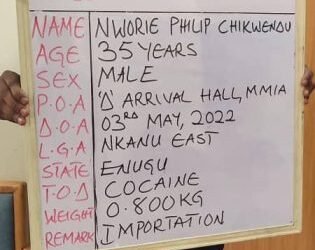 NAME NWORIE PHILIP CHIKWENDU
AGE 35 YEARS
SEX MALE
P.O.A 'D' ARRIVAL HALL, MMIA
D.O.A 03RD MAY, 2022
L.G.A NKANU EAST
STATE ENUGU
T.O.D COCAINE
WEIGHT 0.800KG
REMARK IMPORTATION